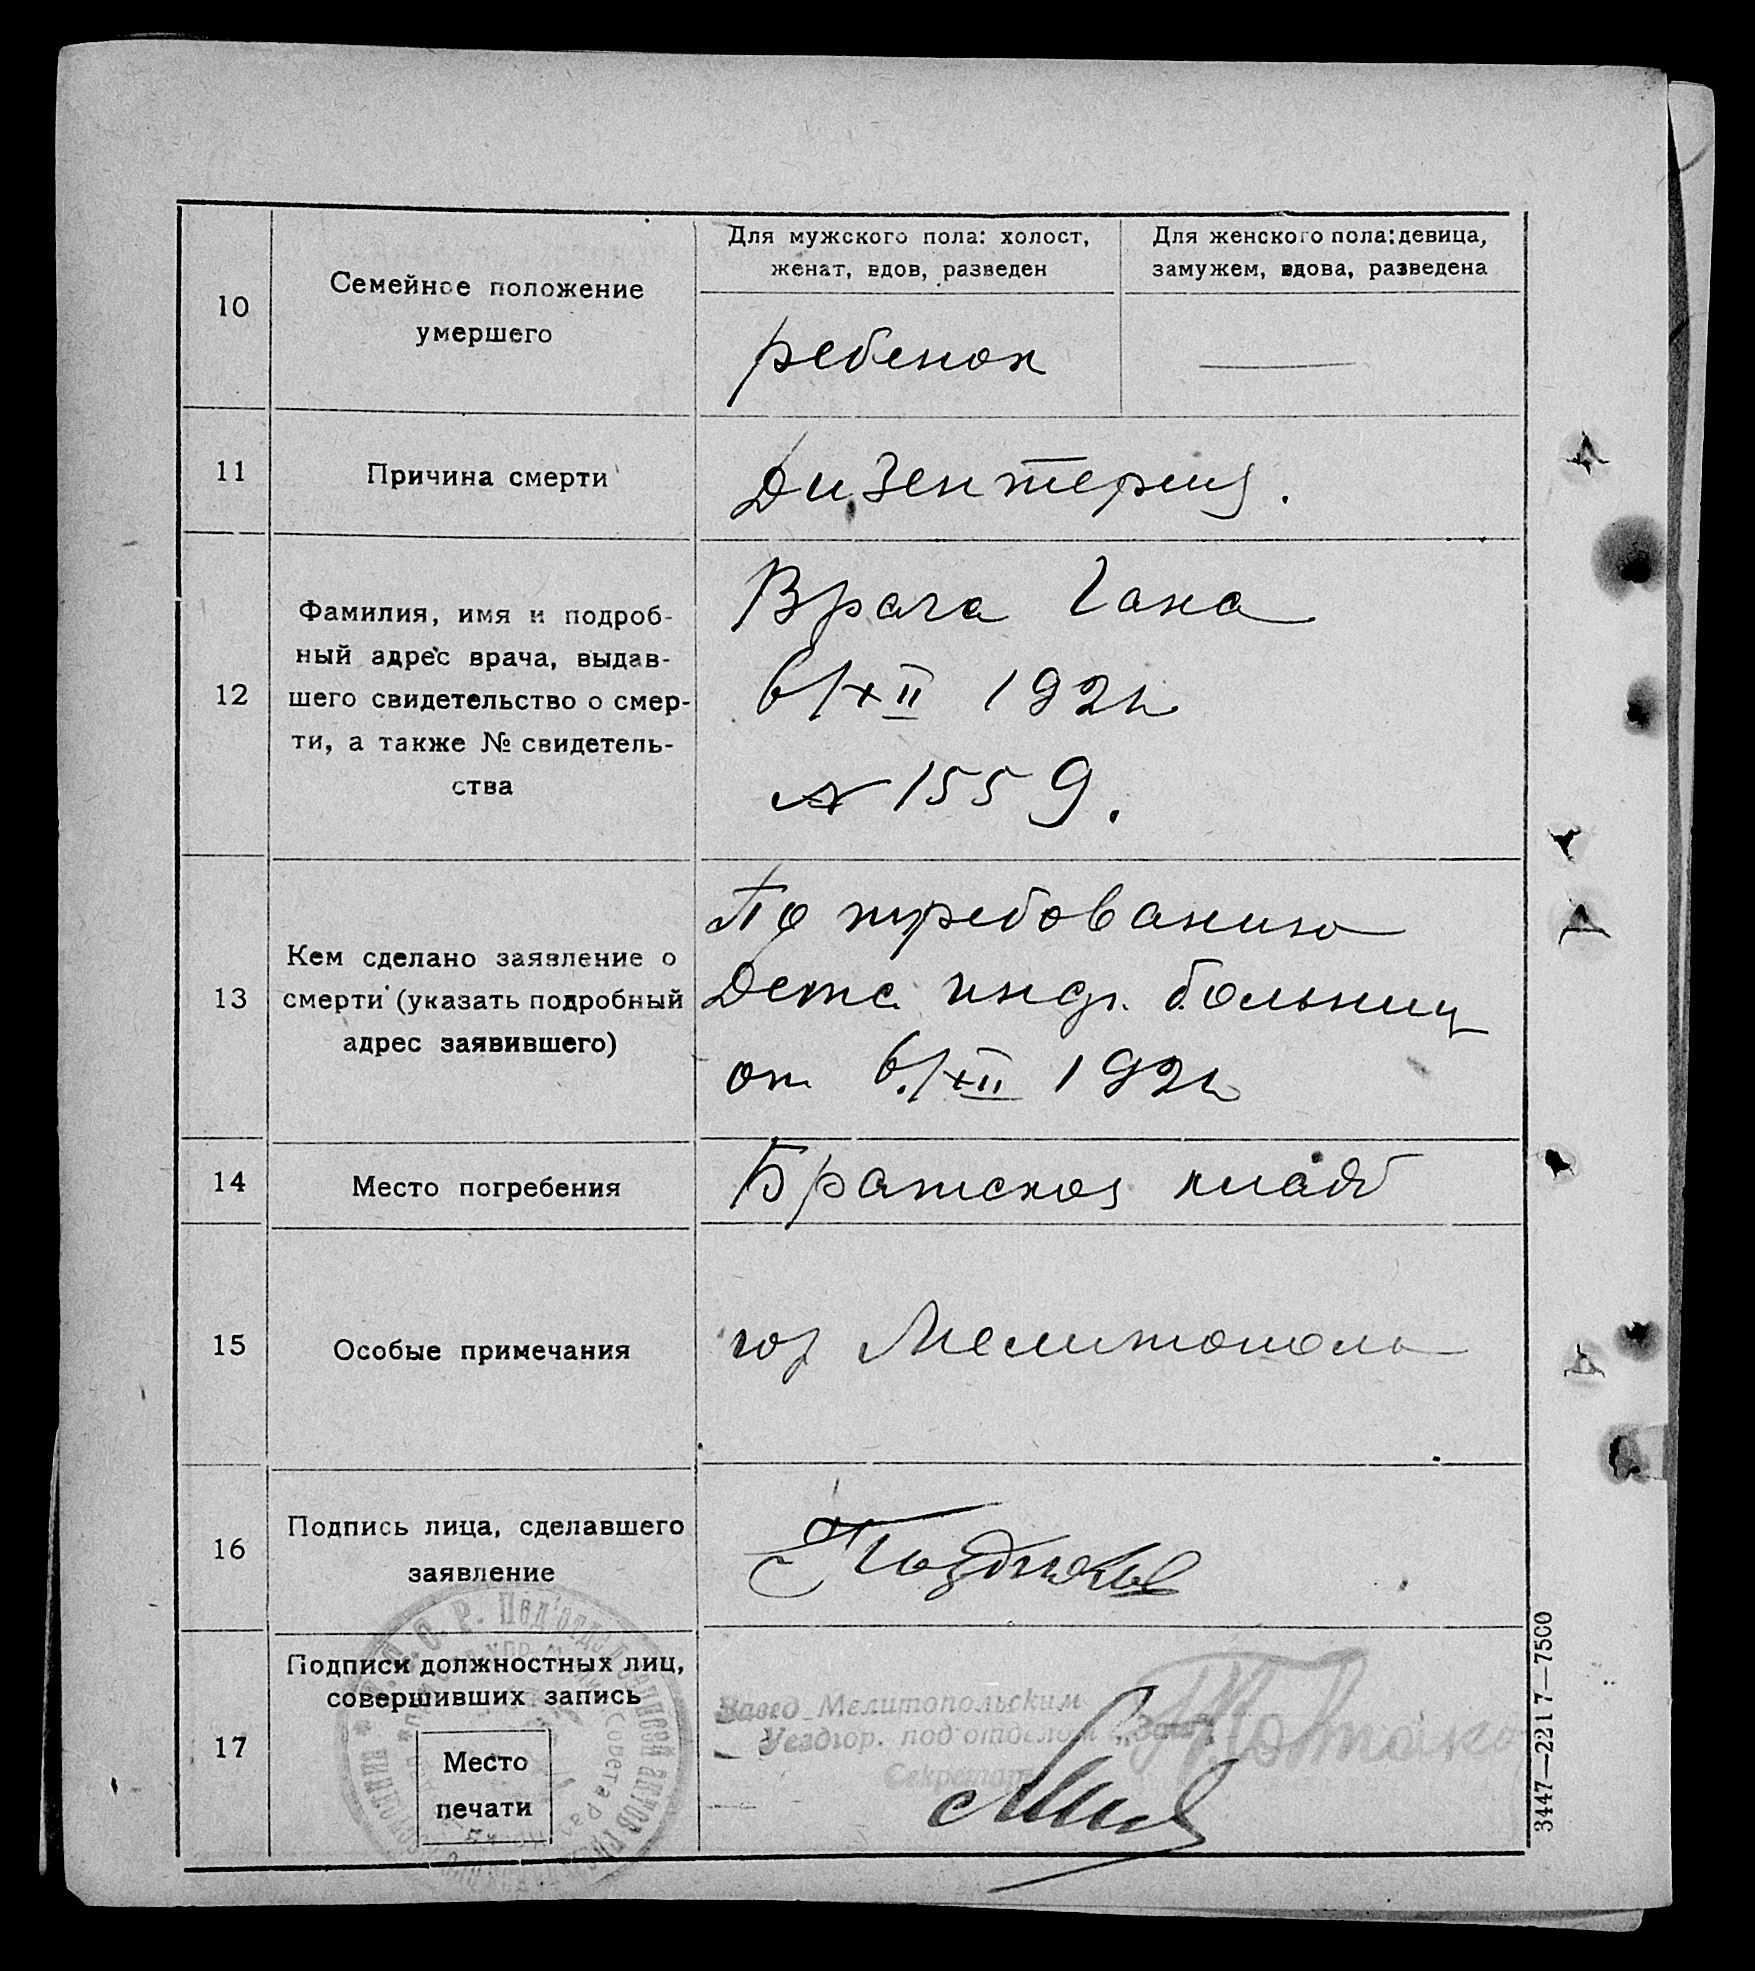 10
Семейное положение
умершего
Для мужского пола: холост,
женат, вдов, разведен
Для женского пола: девица,
замужем, вдова, разведена
ребенок
11
Причина смерти
Дизентерия.
12
Фамилия, имя и подроб-
ный адрес врача, выдав-
шего свидетельство о смер-
ти, а также № свидетель-
ства
Врача Гана
6/XII 1921
№ 1559.
13
Кем сделано заявление о
смерти (указать подробный
адрес заявившего)
По требованию
Детс. больниц
от 6/XII 1921
14
Место погребения
Братское кладб
15
Особые примечания
гор Мелитополь
16
Подпись лица, сделавшего
заявление
17
Подписи должностных лиц,
совершивших запись
Место
печати
Завед Мелитопольским
Уездгор. под'отделом „Загс"
Секретарь
3447—2217—7500